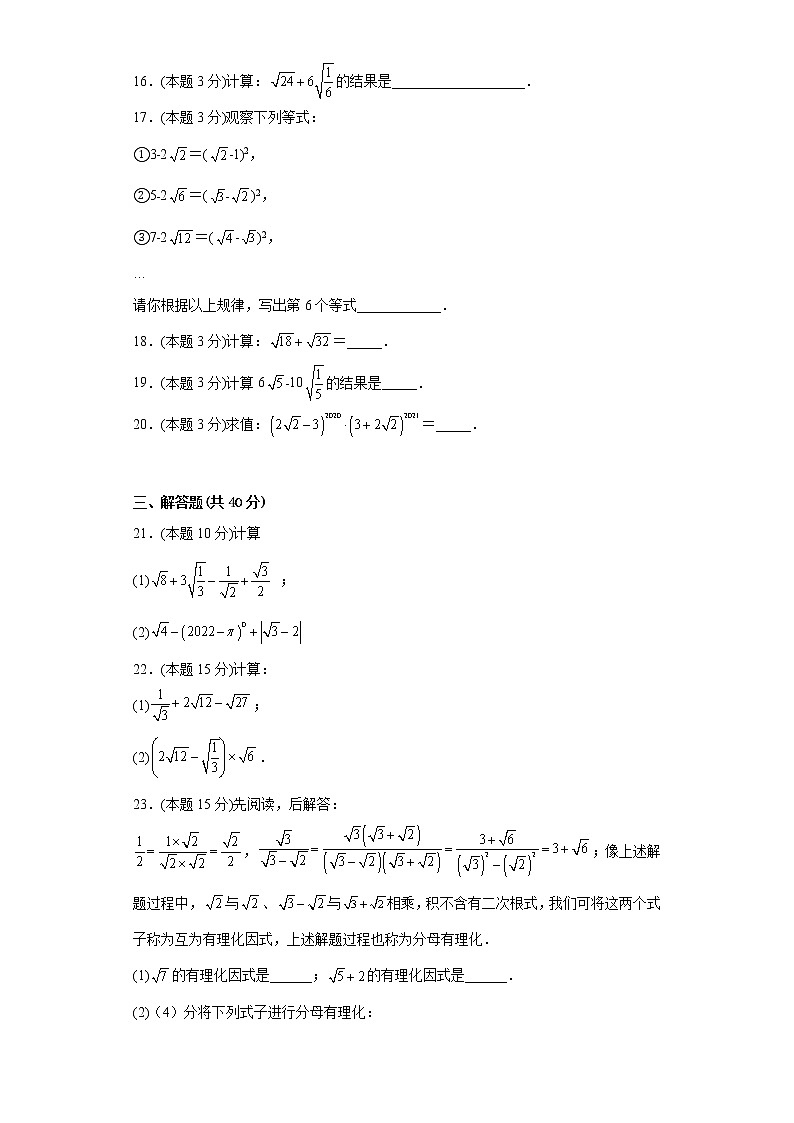 16．(本题 3 分)计算：√24 + 6√(1/6) 的结果是___________________．
17．(本题 3 分)观察下列等式：
①3-2√2＝(√2-1)²，
②5-2√6＝(√3-√2)²，
③7-2√12＝(√4-√3)²，
…
请你根据以上规律，写出第 6 个等式____________．
18．(本题 3 分)计算：√18 + √32＝_____．
19．(本题 3 分)计算 6√5-10√(1/5) 的结果是_____．
20．(本题 3 分)求值：(2√2 − 3)²⁰²⁰ · (3 + 2√2)²⁰²¹＝_____．
三、解答题(共 40 分)
21．(本题 10 分)计算
(1)√8 + 3√(1/3) − 1/√2 + √3/2 ；
(2)√4 − (2022 − π)⁰ + |√3 − 2|
22．(本题 15 分)计算：
(1)1/√3 + 2√12 − √27；
(2)(2√12 − √(1/3)) × √6．
23．(本题 15 分)先阅读，后解答：
1/2 = (1×√2)/(√2×√2) = √2/2，√3/(√3 − √2) = √3(√3 + √2)/((√3 − √2)(√3 + √2)) = (3 + √6)/((√3)² − (√2)²) = 3 + √6；像上述解
题过程中，√2与√2、√3 − √2与√3 + √2相乘，积不含有二次根式，我们可将这两个式
子称为互为有理化因式，上述解题过程也称为分母有理化．
(1)√7的有理化因式是______；√5 + 2的有理化因式是______．
(2)（4）分将下列式子进行分母有理化：